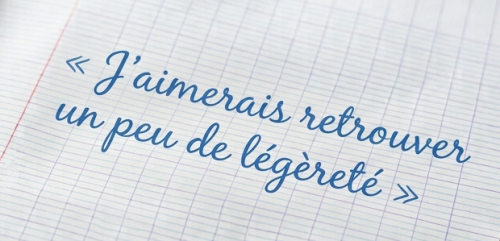 « J'aimerais retrouver
un peu de légèreté »